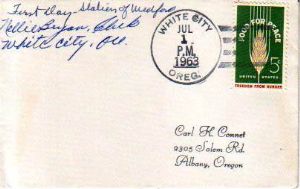 First Day - Station of Medford
Nellie Bryan, Clerk
White City, Ore.
WHITE CITY
JUL
1
P.M.
1963
OREG.
FOOD FOR PEACE
5¢
UNITED STATES
FREEDOM FROM HUNGER
Carl H. Connet
2305 Salem Rd.
Albany, Oregon